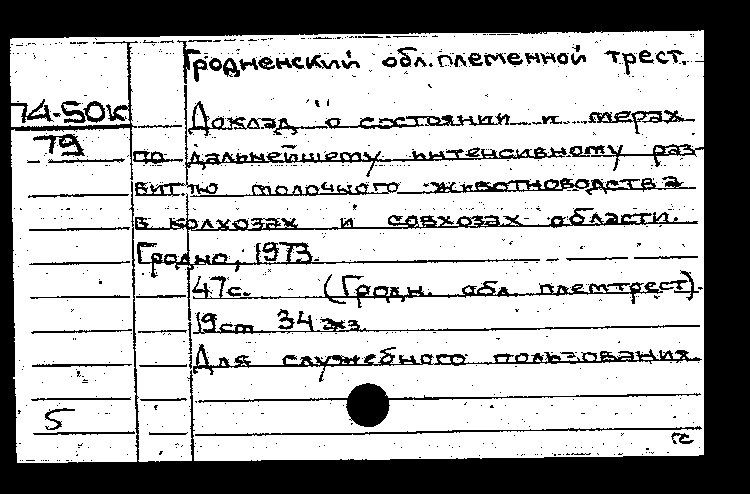 Гродненский обл. племенной трест.
74-50к
79
Доклад "о состоянии и мерах
по дальнейшему интенсивному раз-
витию молочного животноводства
в колхозах и совхозах области.
Гродно, 1973.
47с. (Гродн. обл. племтрест).
19см 34 экз.
Для служебного пользования.
5
ГС